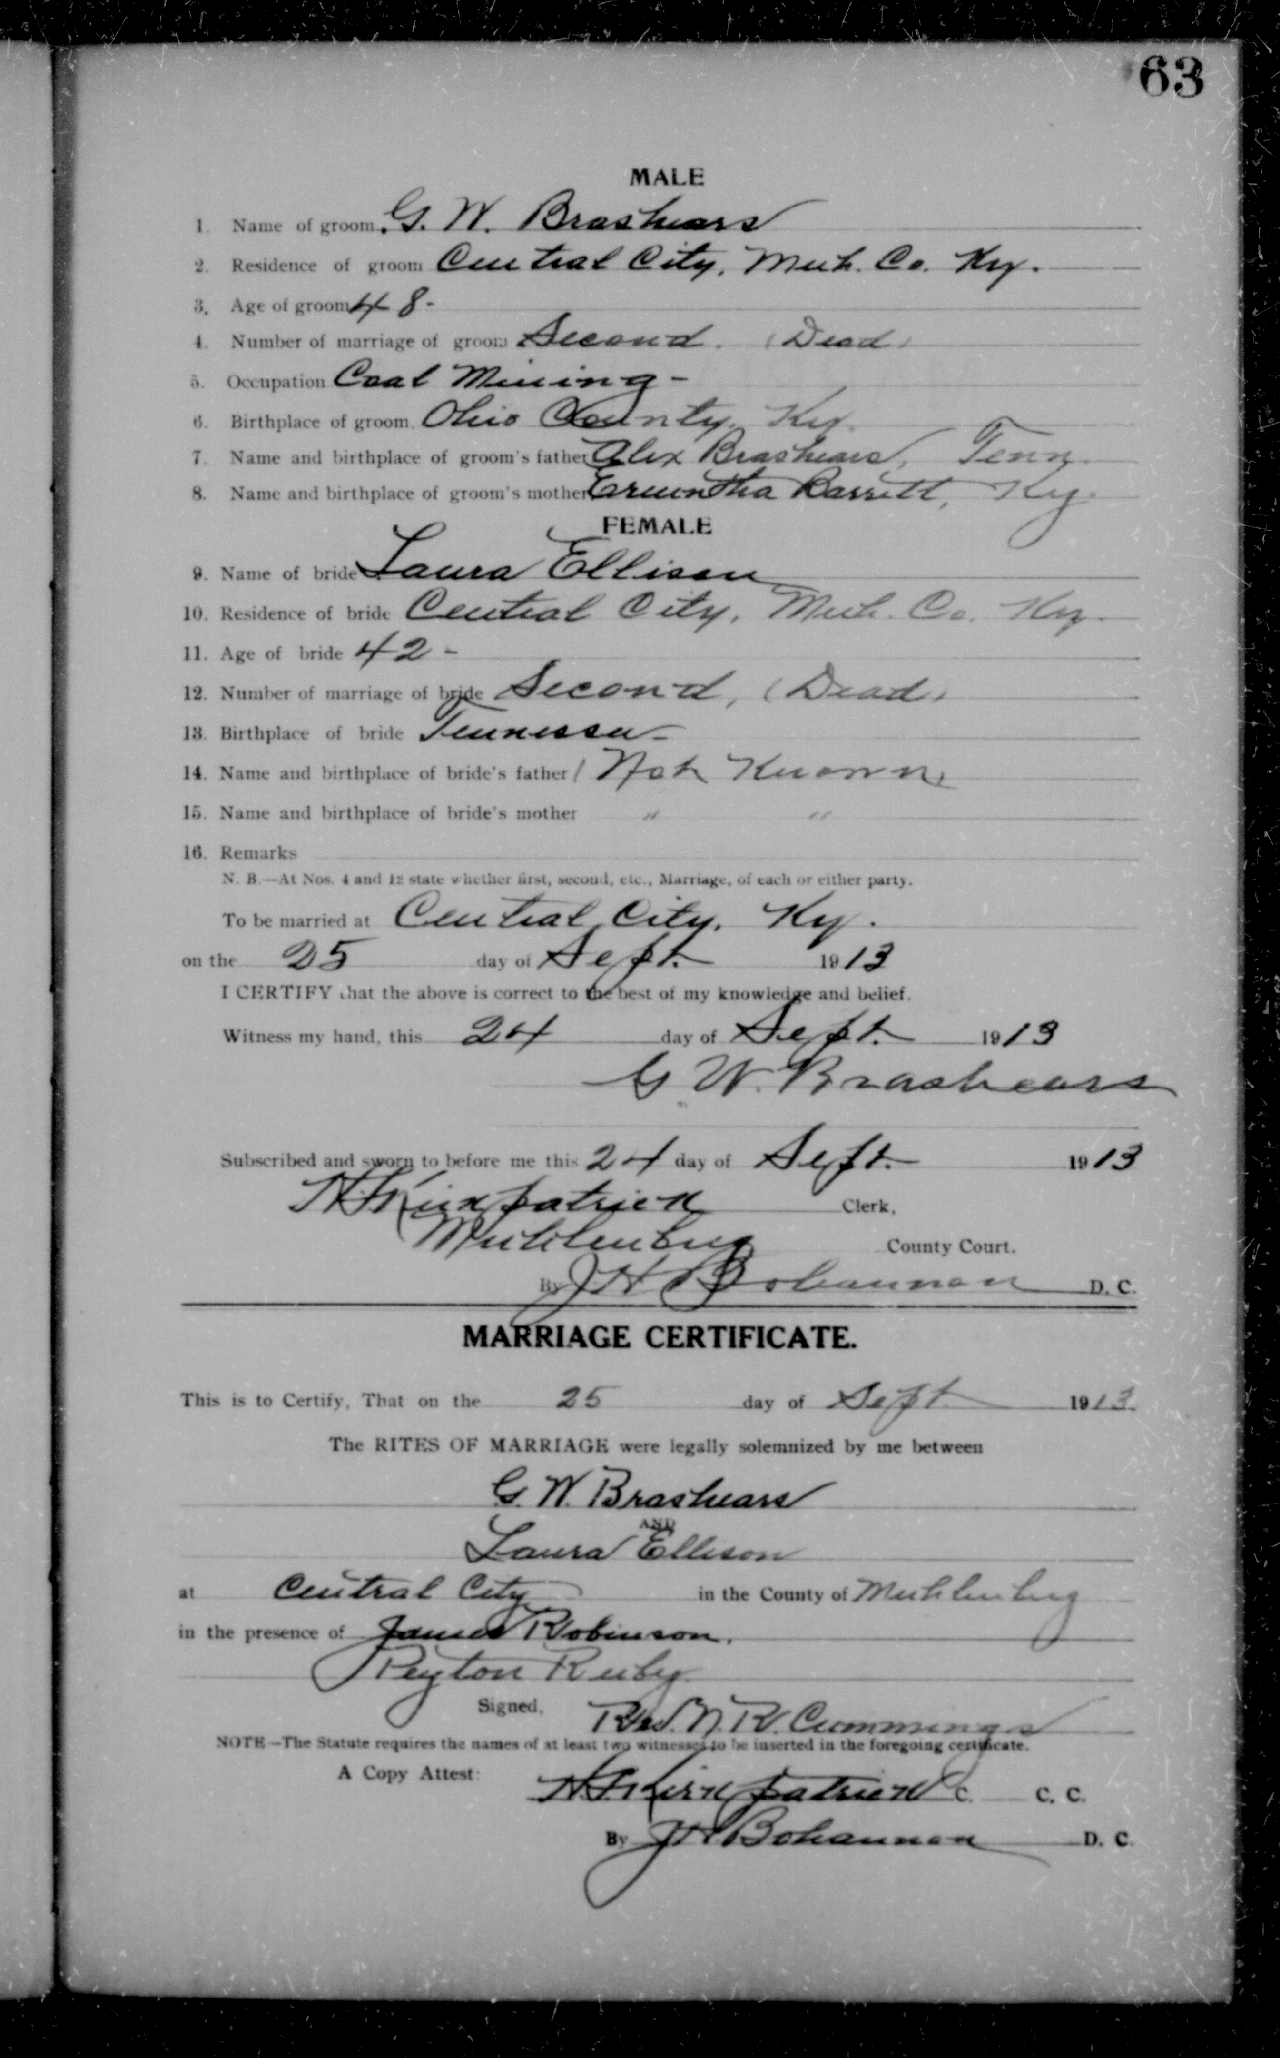 63
MALE
1. Name of groom G. W. Brashears
2. Residence of groom Central City, Muh. Co. Ky.
3. Age of groom 48-
4. Number of marriage of groom Second. (Dead)
5. Occupation Coal Mining-
6. Birthplace of groom Ohio County, Ky.
7. Name and birthplace of groom's father Alex Brashears, Tenn.
8. Name and birthplace of groom's mother Barrett, Ky.
FEMALE
9. Name of bride Laura Ellison
10. Residence of bride Central City, Muh. Co. Ky.
11. Age of bride 42-
12. Number of marriage of bride Second, (Dead)
13. Birthplace of bride Tennessee-
14. Name and birthplace of bride's father (Not Known)
15. Name and birthplace of bride's mother " "
16. Remarks
N. B.—At Nos. 4 and 12 state whether first, second, etc., Marriage, of each or either party.
To be married at Central City, Ky.
on the 25 day of Sept. 1913
I CERTIFY that the above is correct to the best of my knowledge and belief.
Witness my hand, this 24 day of Sept. 1913
G W. Brashears
Subscribed and sworn to before me this 24 day of Sept. 1913
Kirkpatrick Clerk,
Muhlenberg County Court.
By J H Bohannon D. C.
MARRIAGE CERTIFICATE.
This is to Certify, That on the 25 day of Sept. 1913.
The RITES OF MARRIAGE were legally solemnized by me between
G. W. Brashears
AND
Laura Ellison
at Central City in the County of Muhlenberg
in the presence of James Robinson.
Peyton Ruby.
Signed, Rev. N. R. Cummings
NOTE—The Statute requires the names of at least two witnesses to be inserted in the foregoing certificate.
A Copy Attest: Kirkpatrick C. C. C.
By J H Bohannon D. C.